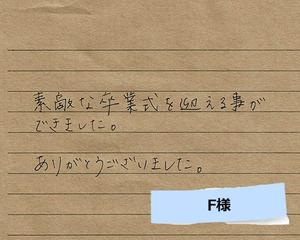 素敵な卒業式を迎える事が
できました。
ありがとうございました。
F様